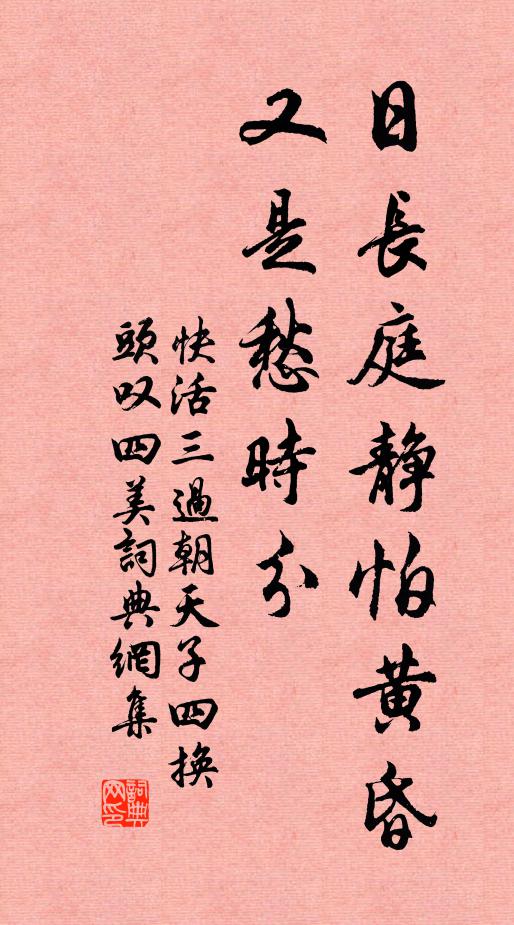 日長庭静怕黄昏
又是愁時分
快活三過朝天子四換
頭叹四美詞典網集
詞典
网印